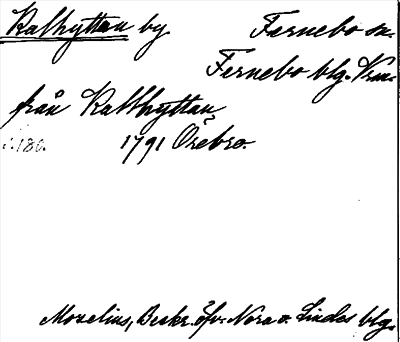 Kalhyttan by Fernebo sn.
Fernebo blg. Vrm.
från Kallhyttan,
s. 180. 1791 Örebro.
Morelius, Beskr. öfv. Nora o. Lindes blg.